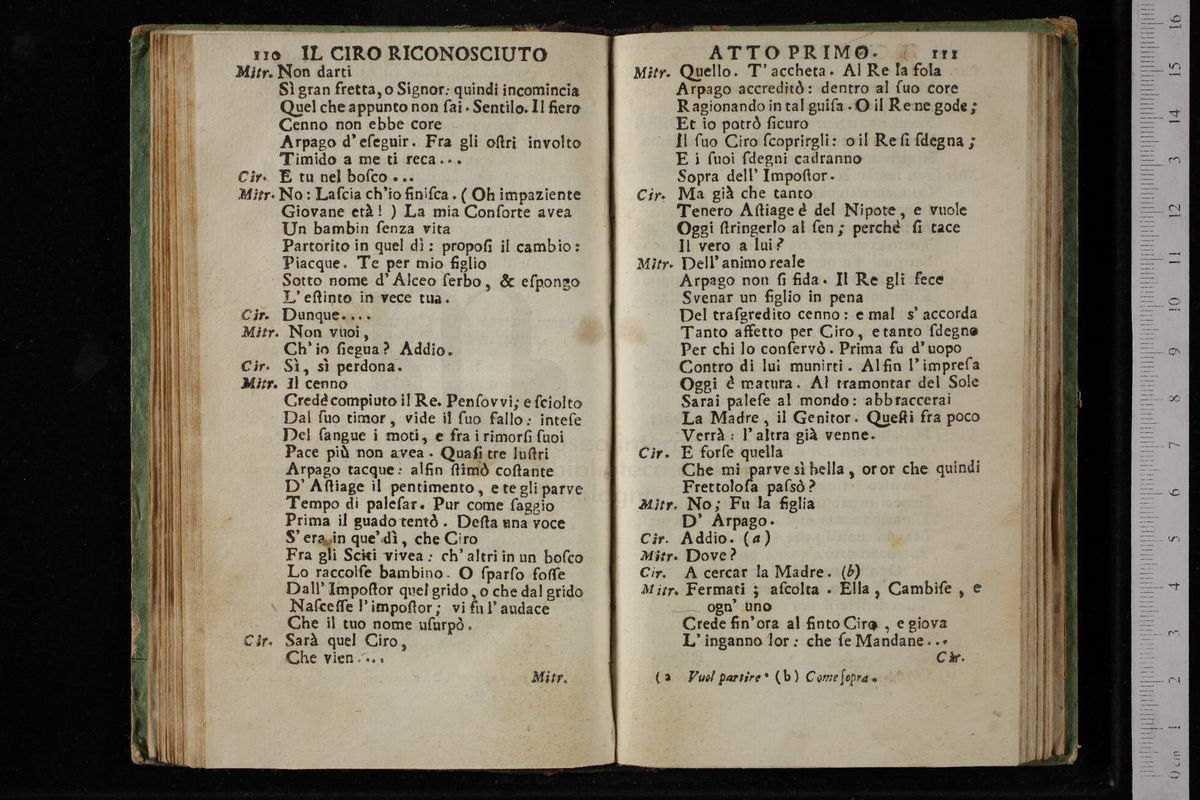 110 IL CIRO RICONOSCIUTO
Mitr. Non darti
Sì gran fretta, o Signor: quindi incomincia
Quel che appunto non ſai. Sentilo. Il fiero
Cenno non ebbe core
Arpago d'eſeguir. Fra gli oſtri involto
Timido a me ti reca...
Cir. E tu nel boſco...
Mitr. No: Laſcia ch'io finiſca. (Oh impaziente
Giovane età!) La mia Conſorte avea
Un bambin ſenza vita
Partorito in quel dì: propoſi il cambio:
Piacque. Te per mio figlio
Sotto nome d'Alceo ſerbo, & eſpongo
L'eſtinto in vece tua.
Cir. Dunque....
Mitr. Non vuoi,
Ch'io ſiegua? Addio.
Cir. Sì, sì perdona.
Mitr. Il cenno
Credè compiuto il Re. Penſovvi; e ſciolto
Dal ſuo timor, vide il ſuo fallo: inteſe
Del ſangue i moti, e fra i rimorſi ſuoi
Pace più non avea. Quaſi tre luſtri
Arpago tacque: alfin ſtimò coſtante
D'Aſtiage il pentimento, e te gli parve
Tempo di paleſar. Pur come ſaggio
Prima il guado tentò. Deſta una voce
S'era in que'dì, che Ciro
Fra gli Sciti vivea: ch'altri in un boſco
Lo raccolſe bambino. O ſparſo foſſe
Dall'Impoſtor quel grido, o che dal grido
Naſceſſe l'impoſtor; vi fu l'audace
Che il tuo nome uſurpò.
Cir. Sarà quel Ciro,
Che vien....
Mitr.
ATTO PRIMO. 111
Mitr. Quello. T'accheta. Al Re la ſola
Arpago accreditò: dentro al ſuo core
Ragionando in tal guiſa. O il Re ne gode;
Et io potrò ſicuro
Il ſuo Ciro ſcoprirgli: o il Re ſi ſdegna;
E i ſuoi ſdegni cadranno
Sopra dell'Impoſtor.
Cir. Ma già che tanto
Tenero Aſtiage è del Nipote, e vuole
Oggi ſtringerlo al ſen; perchè ſi tace
Il vero a lui?
Mitr. Dell'animo reale
Arpago non ſi fida. Il Re gli fece
Svenar un figlio in pena
Del traſgredito cenno: e mal s'accorda
Tanto affetto per Ciro, e tanto ſdegno
Per chi lo conſervò. Prima fu d'uopo
Contro di lui munirti. Alfin l'impreſa
Oggi è matura. Al tramontar del Sole
Sarai paleſe al mondo: abbraccerai
La Madre, il Genitor. Queſti fra poco
Verrà: l'altra già venne.
Cir. E forſe quella
Che mi parve sì bella, or or che quindi
Frettoloſa paſsò?
Mitr. No; Fu la figlia
D'Arpago.
Cir. Addio. (a)
Mitr. Dove?
Cir. A cercar la Madre. (b)
Mitr. Fermati; aſcolta. Ella, Cambiſe, e
ogn'uno
Crede fin'ora al finto Ciro, e giova
L'inganno lor: che ſe Mandane...
Cir.
(a Vuol partire. (b) Come ſopra.
16
15
14
3
12
11
10
9
8
7
6
5
4
3
2
1
0 cm